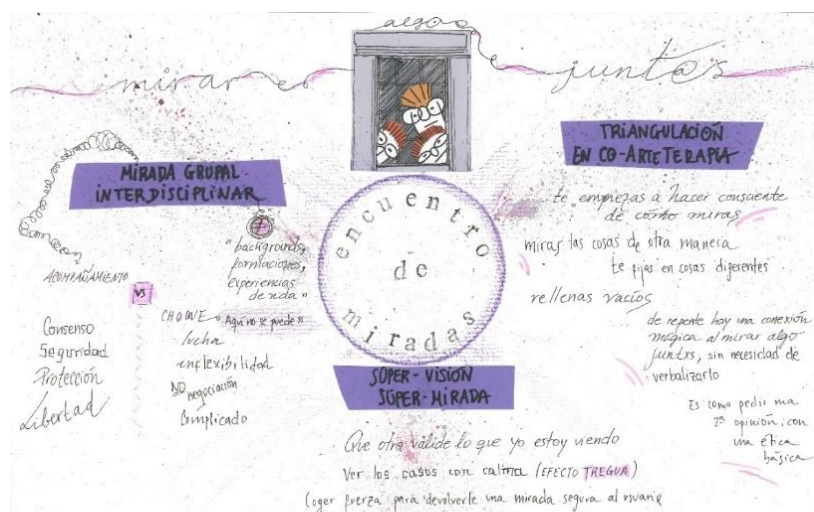 mirar es algo juntas
MIRADA GRUPAL
INTERDISCIPLINAR
+
"backgrounds,
formaciones,
experiencias
de vida"
ACOMPAÑAMIENTO
VS
CHOQUE "Aquí no se puede"
Consenso
Seguridad
Protección
Libertad
lucha
inflexibilidad
NO negociación
Complicado
encuentro
de
miradas
SÚPER-VISIÓN
SÚPER-MIRADA
Que otro valide lo que yo estoy viendo
Ver los casos con calma (EFECTO TREGUA)
Coger fuerza para devolverle una mirada segura al usuario
TRIANGULACIÓN
EN CO-ARTETERAPIA
te empiezas a hacer consciente
de como miras
miras las cosas de otra manera
te fijas en cosas diferentes
rellenas vacíos
de repente hay una conexión
mágica al mirar algo
juntxs, sin necesidad de
verbalizarlo
Es como pedir una
2ª opinión, con
una ética
básica